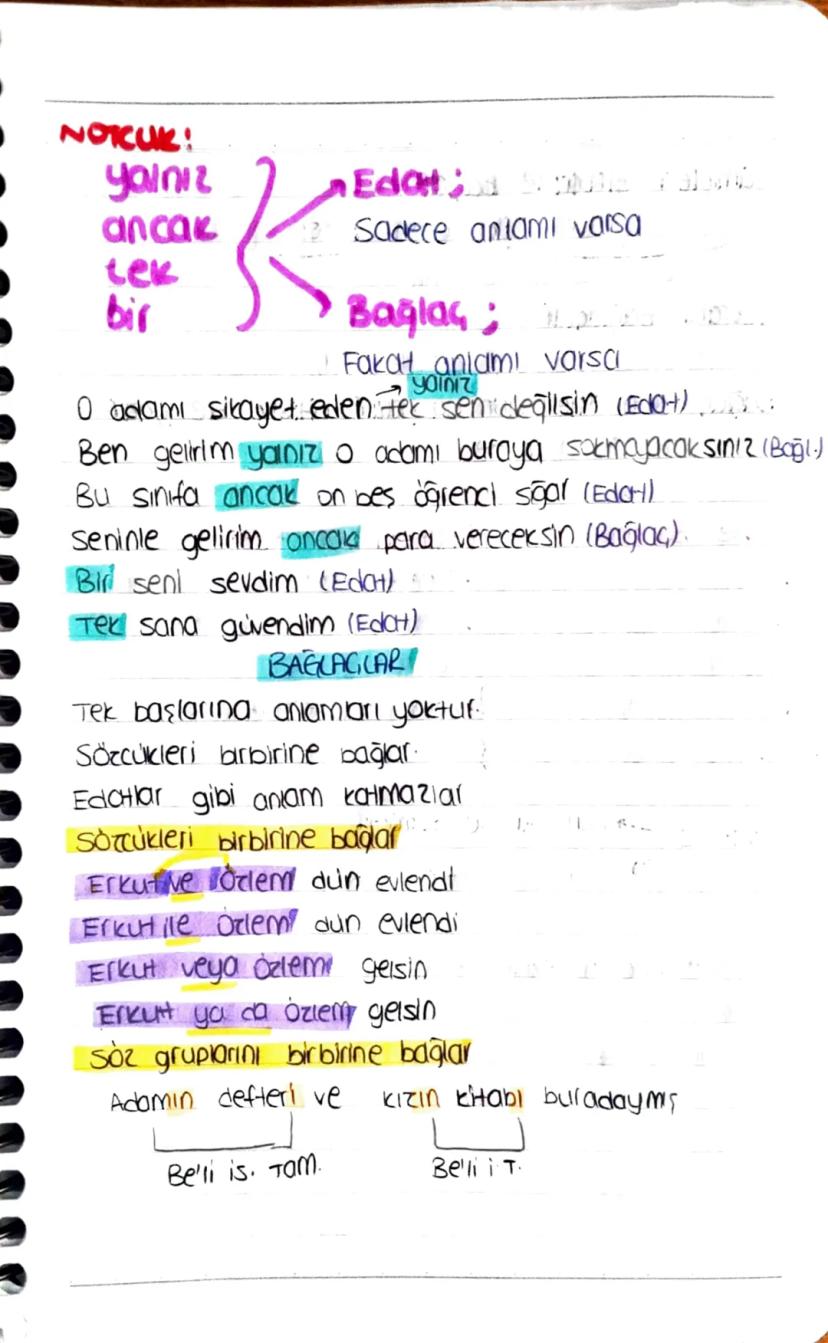 NOTCUK!
yalnız
ancak
tek
bir
Edat;
Sadece anlamı varsa
Bağlaç;
Fakat anlamı varsa
yalnız
O adamı şikayet eden tek sen değilsin (Edat)
Ben gelirim yalnız o adamı buraya sokmayacaksınız (Bağl.)
Bu sınıfa ancak on beş öğrenci sığar (Edat)
Seninle gelirim ancak para vereceksin (Bağlaç).
Bir seni sevdim (Edat)
Tek sana güvendim (Edat)
BAĞLAÇLAR
Tek başlarına anlamları yoktur.
Sözcükleri birbirine bağlar.
Edatlar gibi anlam katmazlar
Sözcükleri birbirine bağlar
Erkut ve Özlem dün evlendi
Erkut ile Özlem dün evlendi
Erkut veya Özlem gelsin
Erkut ya da Özlem gelsin
Söz gruplarını birbirine bağlar
Adamın defteri ve kızın kitabı buradaymış
Be'li is. Tam. Be'li i T.